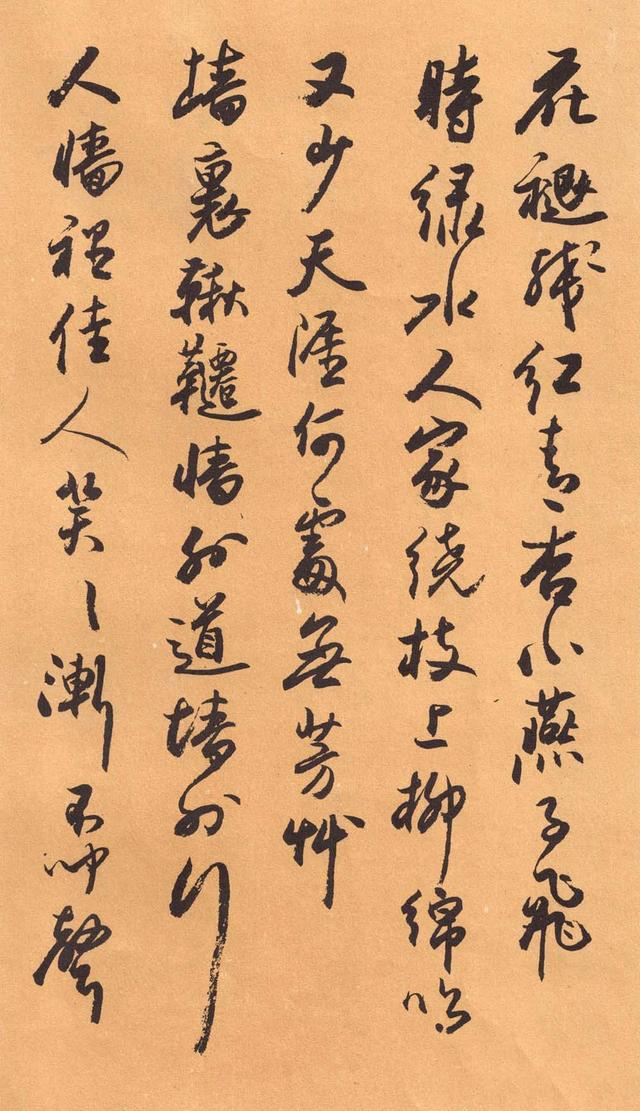 花褪残红青杏小燕子飛
時绿水人家绕枝上柳綿吹
又少天涯何處無芳艸
墙裏鞦韆墙外道墙外行
人墙裡佳人笑〻漸不聞聲